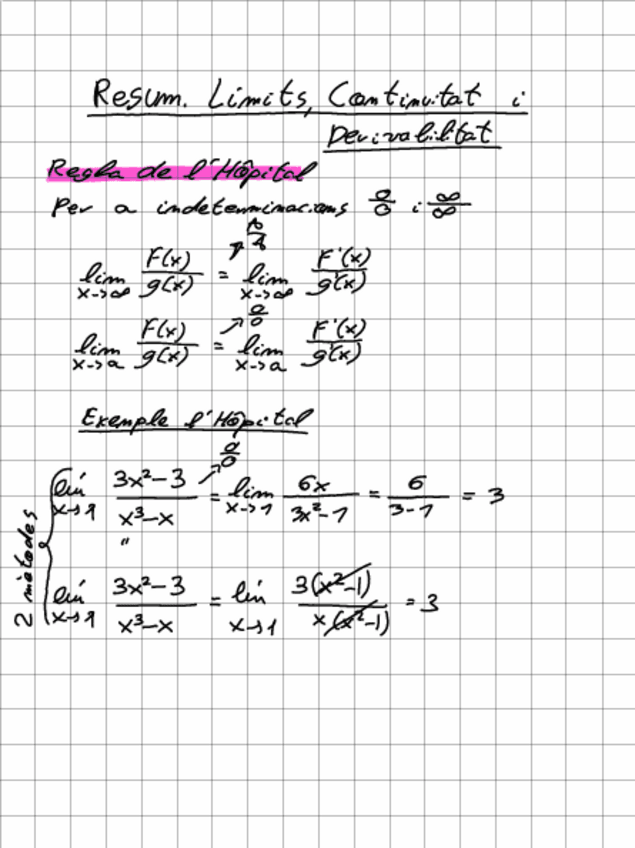 Resum. Límits, Continuitat i
Derivabilitat
Regla de l'Hôpital
Per a indeterminacions 0/0 i ∞/∞
lim x→∞ F(x)/g(x) = lim x→∞ F'(x)/g'(x)
0/0
lim x→a F(x)/g(x) = lim x→a F'(x)/g'(x)
Exemple l'Hôpital
0/0
2 mètodes
lim x→1 3x²-3/x³-x = lim x→1 6x/3x²-1 = 6/3-1 = 3
"
lim x→1 3x²-3/x³-x = lim x→1 3(x²-1)/x(x²-1) = 3